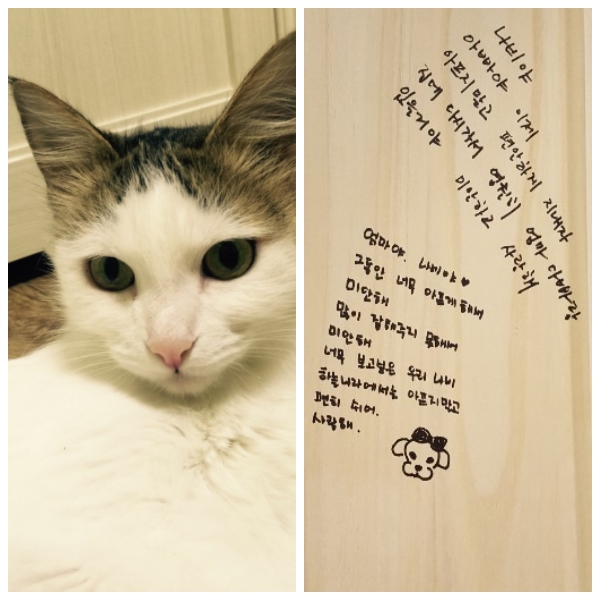 나비야
아빠야
아프지말고 이제 편안하게 지내자
집에 다시가서 영원히 엄마 아빠랑
있을거야 미안하고 사랑해
엄마야. 나비야♥
그동안 너무 아프게해서
미안해
많이 잘해주지 못해서
미안해
너무 보고싶은 우리 나비
하늘나라에서는 아프지말고
편히 쉬어.
사랑해.